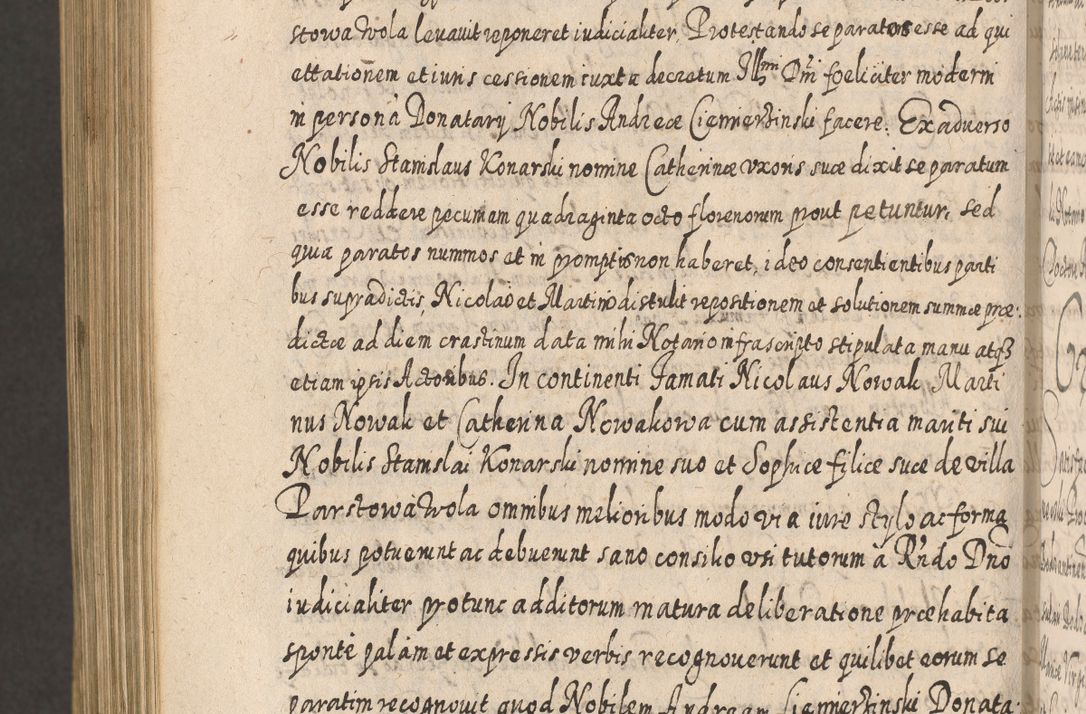 stowa Wola levavit reponeret iudicialiter. Protestando se paratos esse ad qui
ettationem et iuris cessionem iuxta decretum Illmi Dni foeliciter moderni
in persona Donatarij Nobilis Andreæ Ciemierzinski facere. Ex adverso
Nobilis Stanislaus Konarski nomine Catherinæ vxoris suæ dixit se paratum
esse reddere pecuniam quadraginta octo florenorum prout petuntur, sed
quia paratos nummos et in promptis non haberet, ideo consentientibus parti
bus supradictis, Nicolao et Martino distulit repositionem et solutionem summæ præ:
dictæ ad diem crastinum data mihi Notario infrascripto stipulata manu atq3
etiam ipsis Actoribus. In continenti Famati Nicolaus Nowak Marti
nus Nowak et Catherina Nowakowa cum assistentia mariti sui
Nobilis Stanislai Konarski nomine suo et Sophiæ filiæ suæ de villa
Parstowa Wola omnibus melioribus modo via iure stylo ac forma
quibus potuerunt ac debuerunt sano consilio vsi tutorum a Rndo Dno
iudicialiter protunc additorum matura deliberatione præhabita
sponte palam et expressis verbis recognoverunt et quilibet eorum se
paratim recognovit quod Nobilem Andream Ciemierzinski Donata